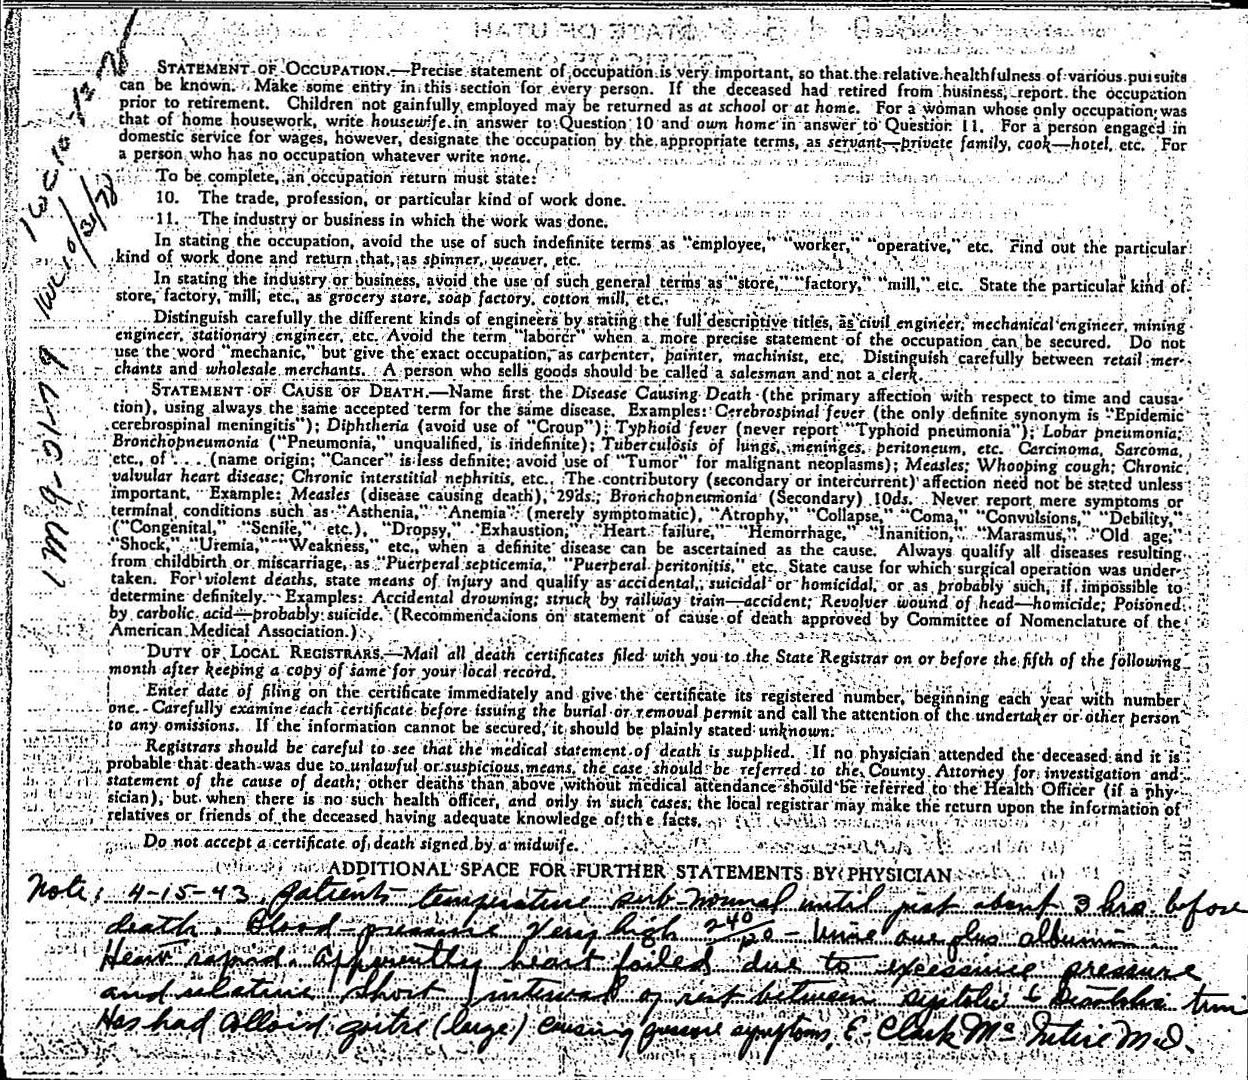 STATE OF UTAH
STATEMENT OF OCCUPATION.—Precise statement of occupation is very important, so that the relative healthfulness of various pursuits
can be known. Make some entry in this section for every person. If the deceased had retired from business, report the occupation
prior to retirement. Children not gainfully employed may be returned as at school or at home. For a woman whose only occupation was
that of home housework, write housewife in answer to Question 10 and own home in answer to Question 11. For a person engaged in
domestic service for wages, however, designate the occupation by the appropriate terms, as servant—private family, cook—hotel, etc. For
a person who has no occupation whatever write none.
To be complete, an occupation return must state:
10. The trade, profession, or particular kind of work done.
11. The industry or business in which the work was done.
In stating the occupation, avoid the use of such indefinite terms as "employee," "worker," "operative," etc. Find out the particular
kind of work done and return that, as spinner, weaver, etc.
In stating the industry or business, avoid the use of such general terms as "store," "factory," "mill," etc. State the particular kind of
store, factory, mill, etc., as grocery store, soap factory, cotton mill, etc.
Distinguish carefully the different kinds of engineers by stating the full descriptive titles, as civil engineer, mechanical engineer, mining
engineer, stationary engineer, etc. Avoid the term "laborer" when a more precise statement of the occupation can be secured. Do not
use the word "mechanic," but give the exact occupation, as carpenter, painter, machinist, etc. Distinguish carefully between retail mer-
chants and wholesale merchants. A person who sells goods should be called a salesman and not a clerk.
STATEMENT OF CAUSE OF DEATH.—Name first the Disease Causing Death (the primary affection with respect to time and causa-
tion), using always the same accepted term for the same disease. Examples: Cerebrospinal fever (the only definite synonym is "Epidemic
cerebrospinal meningitis"); Diphtheria (avoid use of "Croup"); Typhoid fever (never report "Typhoid pneumonia"); Lobar pneumonia;
Bronchopneumonia ("Pneumonia," unqualified, is indefinite); Tuberculosis of lungs, meninges, peritoneum, etc. Carcinoma, Sarcoma,
etc., of . . . . (name origin; "Cancer" is less definite; avoid use of "Tumor" for malignant neoplasms); Measles; Whooping cough; Chronic
valvular heart disease; Chronic interstitial nephritis, etc. The contributory (secondary or intercurrent) affection need not be stated unless
important. Example: Measles (disease causing death), 29ds.; Bronchopneumonia (Secondary) 10ds. Never report mere symptoms or
terminal conditions such as "Asthenia," "Anemia" (merely symptomatic), "Atrophy," "Collapse," "Coma," "Convulsions," "Debility,"
("Congenital," "Senile," etc.), "Dropsy," "Exhaustion," "Heart failure," "Hemorrhage," "Inanition," "Marasmus," "Old age,"
"Shock," "Uremia," "Weakness," etc., when a definite disease can be ascertained as the cause. Always qualify all diseases resulting
from childbirth or miscarriage, as "Puerperal septicemia," "Puerperal peritonitis," etc. State cause for which surgical operation was under-
taken. For violent deaths, state means of injury and qualify as accidental, suicidal or homicidal, or as probably such, if impossible to
determine definitely. Examples: Accidental drowning; struck by railway train—accident; Revolver wound of head—homicide; Poisoned
by carbolic acid—probably suicide. (Recommendations on statement of cause of death approved by Committee of Nomenclature of the
American Medical Association.)
DUTY OF LOCAL REGISTRARS.—Mail all death certificates filed with you to the State Registrar on or before the fifth of the following
month after keeping a copy of same for your local record.
Enter date of filing on the certificate immediately and give the certificate its registered number, beginning each year with number
one. Carefully examine each certificate before issuing the burial or removal permit and call the attention of the undertaker or other person
to any omissions. If the information cannot be secured, it should be plainly stated unknown.
Registrars should be careful to see that the medical statement of death is supplied. If no physician attended the deceased and it is
probable that death was due to unlawful or suspicious means, the case should be referred to the County Attorney for investigation and
statement of the cause of death; other deaths than above without medical attendance should be referred to the Health Officer (if a phy-
sician), but when there is no such health officer, and only in such cases, the local registrar may make the return upon the information of
relatives or friends of the deceased having adequate knowledge of the facts.
Do not accept a certificate of death signed by a midwife.
ADDITIONAL SPACE FOR FURTHER STATEMENTS BY PHYSICIAN
Note: 4-15-43 patients temperature sub-normal until just about 3 hrs before
death. Blood-pressure very high 240/120 - Urine one plus albumin
Heart rapid. Apparently heart failed due to excessive pressure
and relative short interval of rest between systolic & diastolic
Has had colloid goitre (large) causing pressure symptoms, E. Clark McIntire M.D.
1M 9-21-79